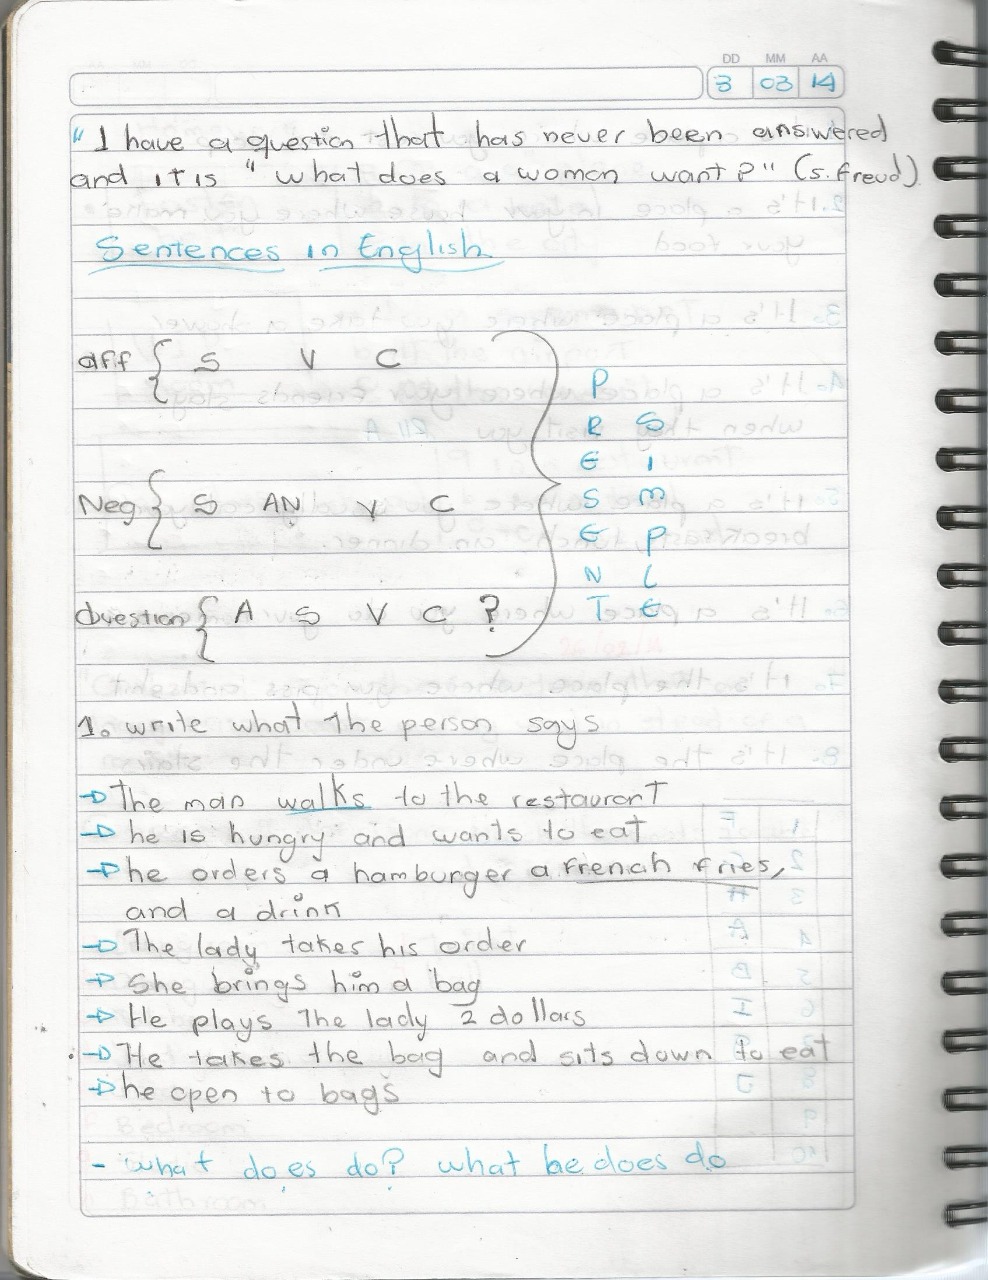 DD MM AA
3 03 14
"I have a question that has never been answered
and it is "what does a woman want?" (s. freud)
Sentences in English
aff { S V C
Neg { S AN V C
Question { A S V C ?
PRESENT SIMPLE
1. write what the person says
→ The man walks to the restaurant
→ he is hungry and wants to eat
→ he orders a hamburger a french fries,
and a drink
→ The lady takes his order
→ She brings him a bag
→ He plays the lady 2 dollars
→ He takes the bag and sits down to eat
→ he open to bags
- what does do? what he does do